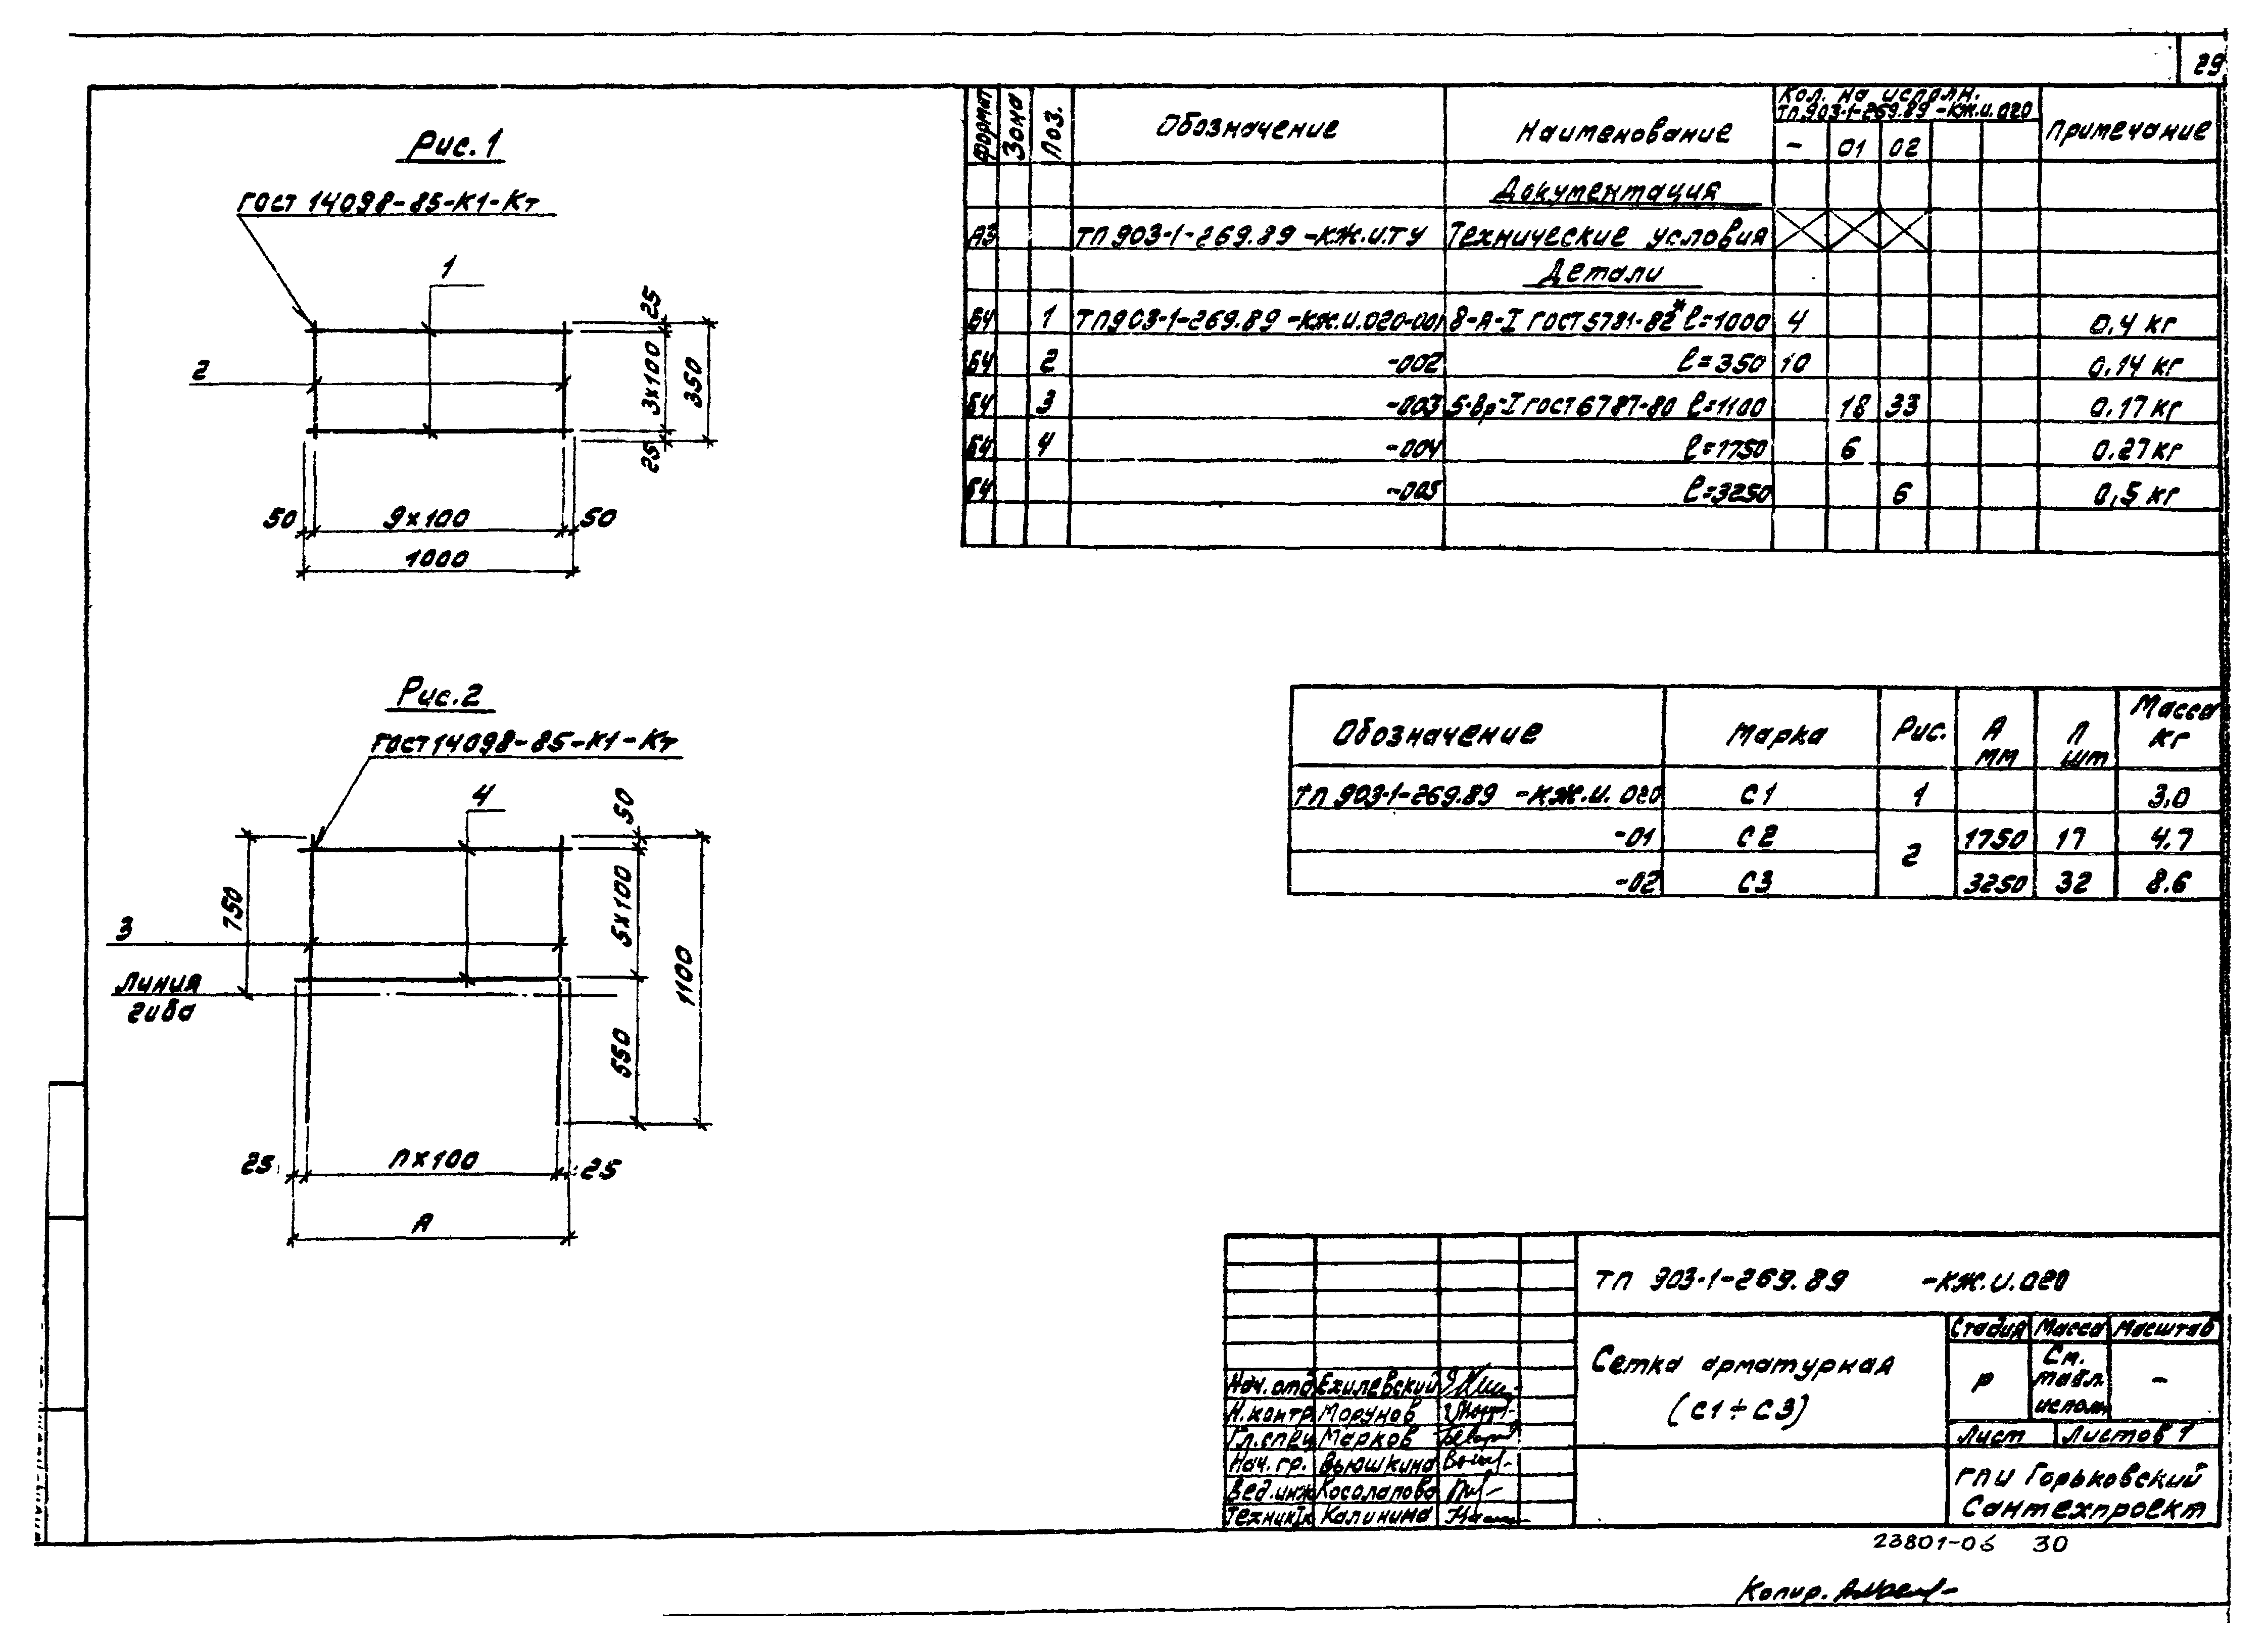 29
Рис. 1
ГОСТ 14098-85-К1-Кт
1
2
25
3х100
350
25
50
9х100
50
1000
Рис. 2
ГОСТ 14098-85-К1-Кт
4
3
750
50
5х100
1100
550
Линия
гиба
25
nх100
25
А
Формат Зона Поз. Обозначение Наименование Кол. на исполн. ТП 903-1-269.89 -КЖ.И.020 Примечание
- 01 02
Документация
А3 ТП 903-1-269.89 -КЖ.И.ТУ Технические условия
Детали
БЧ 1 ТП 903-1-269.89 -КЖ.И.020-001 8-А-I ГОСТ 5781-82* ℓ=1000 4 0,4 кг
БЧ 2 -002 ℓ=350 10 0,14 кг
БЧ 3 -003 5-Вр-I ГОСТ 6787-80 ℓ=1100 18 33 0,17 кг
БЧ 4 -004 ℓ=1750 6 0,27 кг
БЧ -005 ℓ=3250 6 0,5 кг
Обозначение Марка Рис. А мм п шт Масса кг
ТП 903-1-269.89 -КЖ.И. 020 С1 1 3,0
-01 С2 2 1750 17 4,7
-02 С3 3250 32 8.6
ТП 903-1-269.89 -КЖ.И.020
Сетка арматурная
(С1÷С3)
Стадия Масса Масштаб
Р См. табл. исполн. -
Лист Листов 1
ГПИ Горьковский
Сантехпроект
Нач. отд Ехилевский
Н.контр Морунов
Гл.спец Марков
Нач. гр. Вьюшкина
Вед.инж Косолапова
Техник Iк Калинина
23801-06 30
Копир.